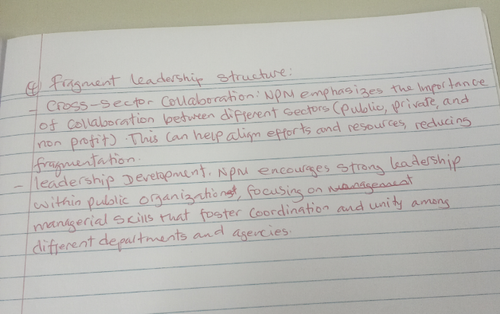 ④ fragment leadership structure:
- Cross-Sector Collaboration: NPM emphasizes the importance
of collaboration between different sectors (public, private, and
non profit). This can help align efforts and resources, reducing
fragmentation.
- leadership Development. NPM encourages strong leadership
within public organizations, focusing on management
managerial skills that foster coordination and unity among
different departments and agencies.